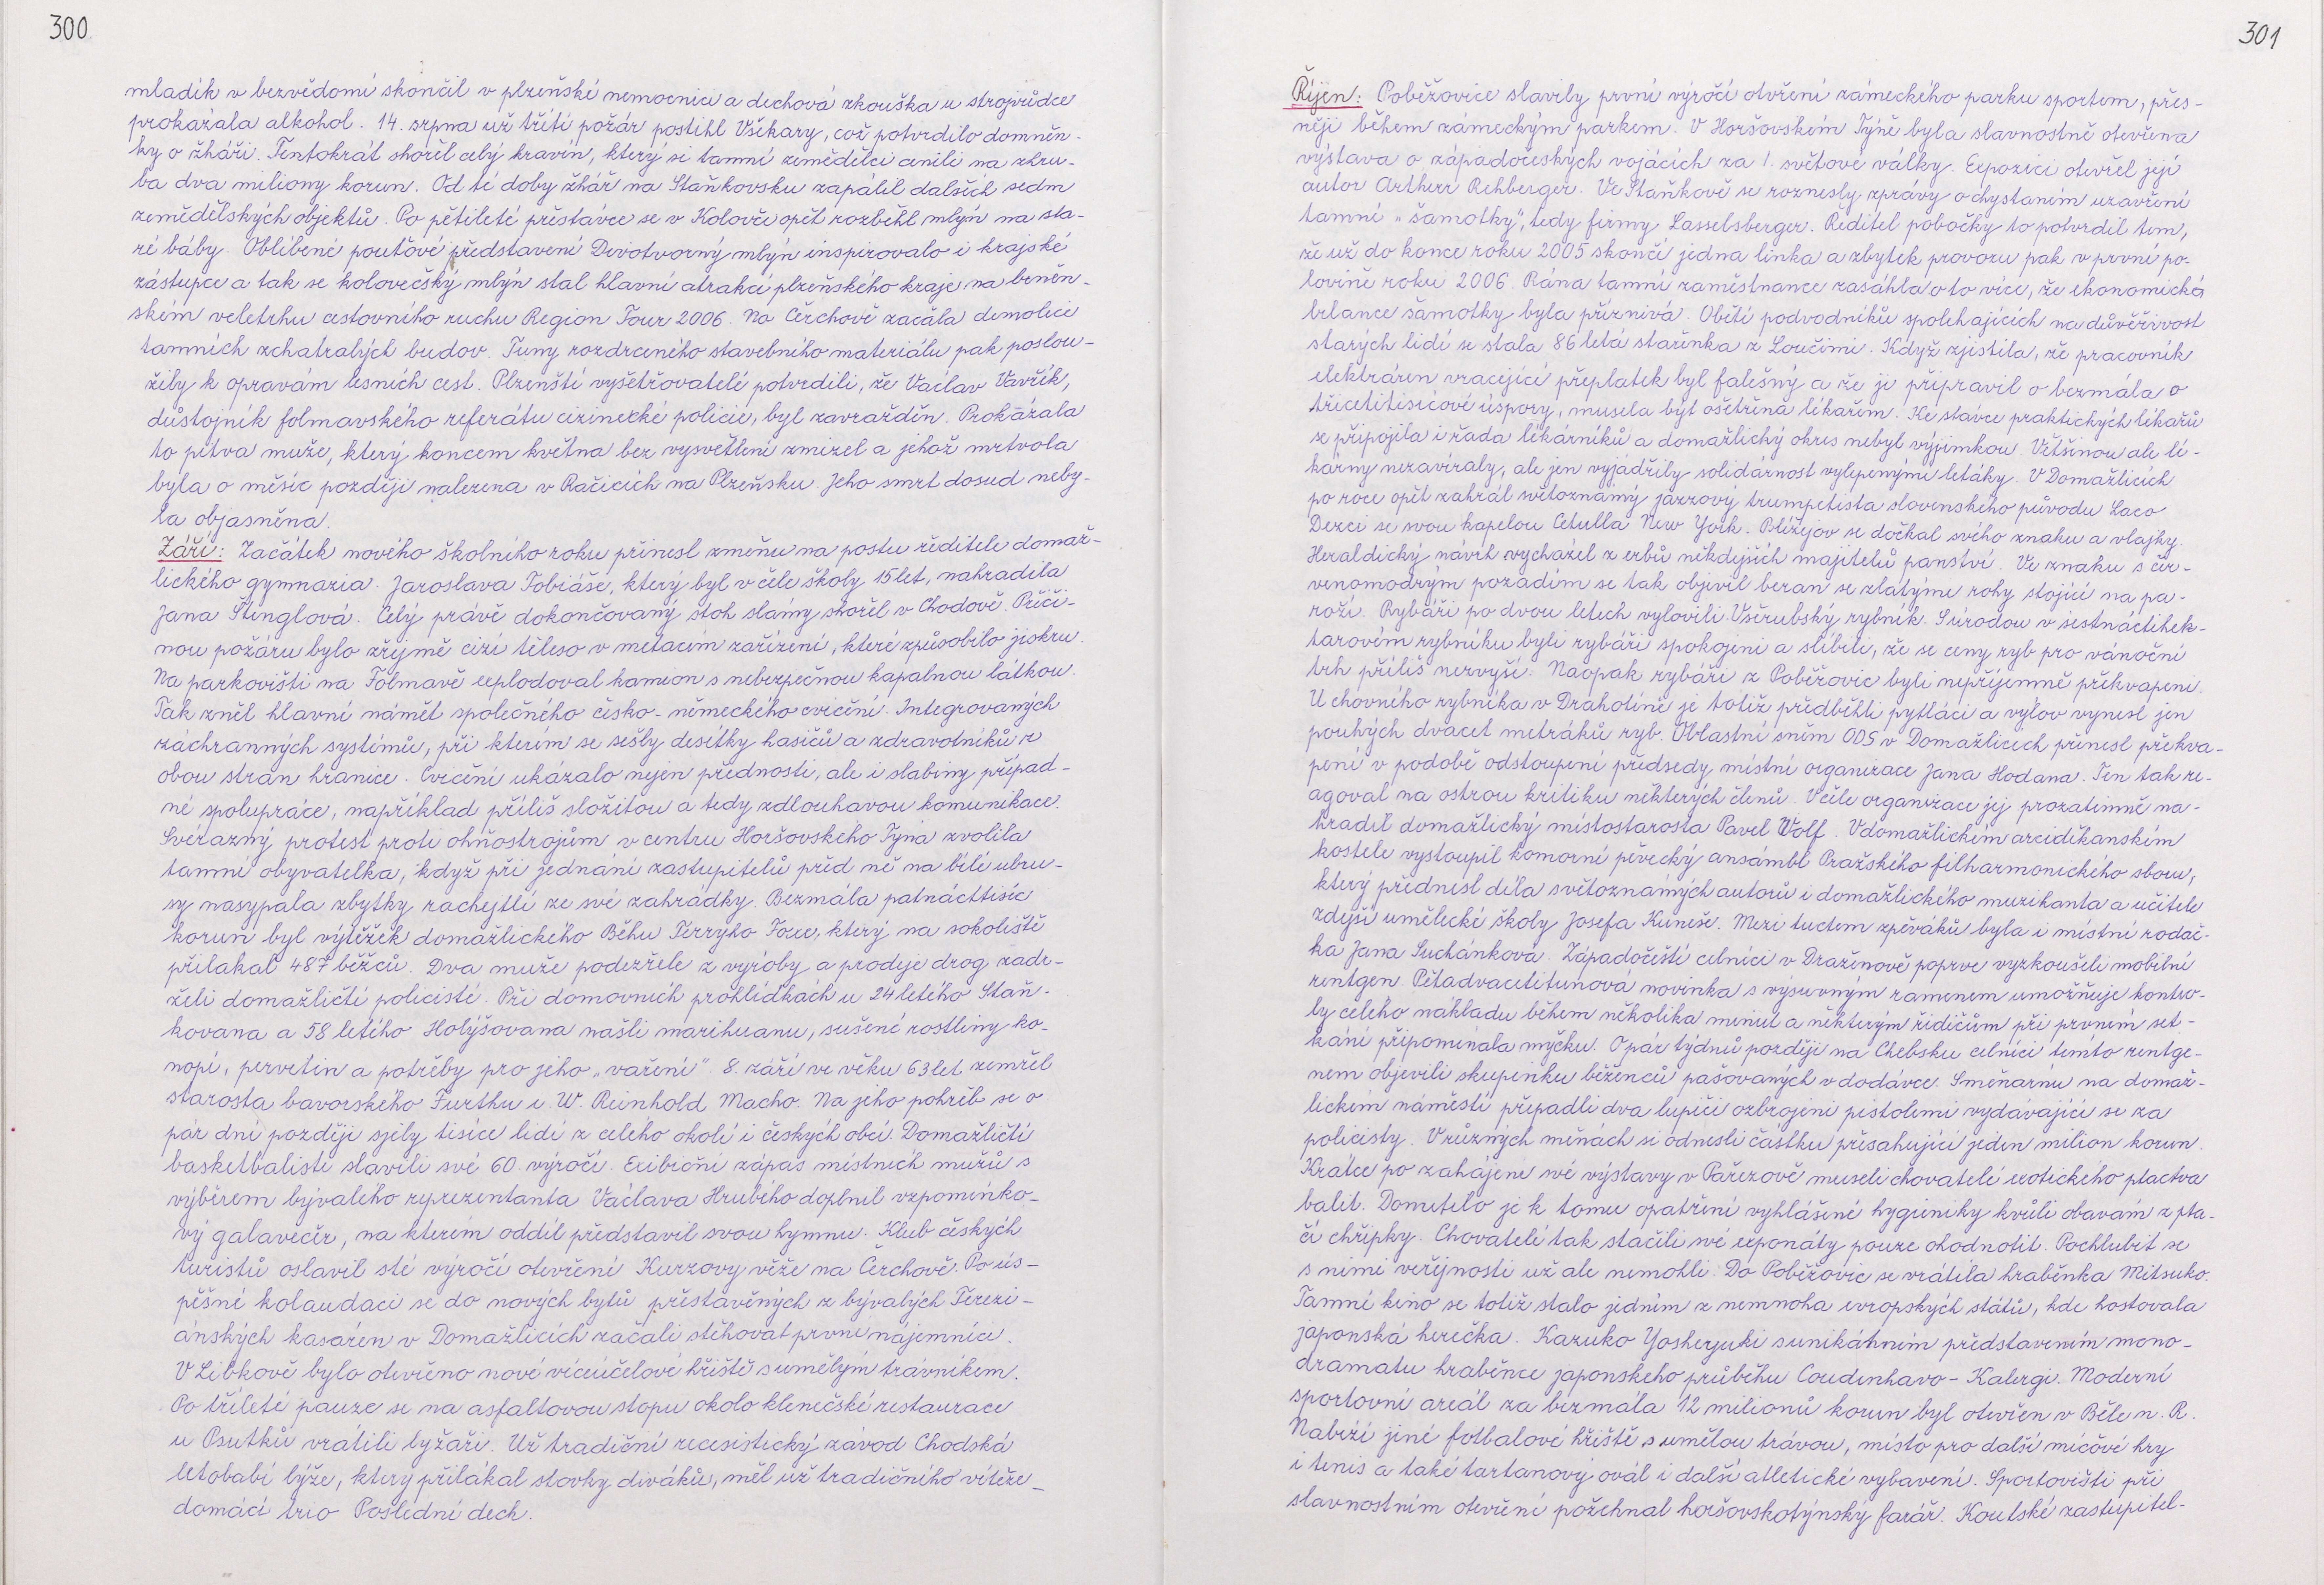 300
mladík v bezvědomí skončil v plzeňské nemocnici a dechová zkouška u strojvůdce
prokázala alkohol. 14. srpna už třetí požár postihl Všekary, což potvrdilo domněn-
ky o žháři. Tentokrát shořel celý kravín, který si tamní zemědělci cenili na zhru-
ba dva miliony korun. Od té doby žhář na Staňkovsku zapálil dalších sedm
zemědělských objektů. Po pětileté přestávce se v Kolovči opět rozběhl mlýn na sta-
ré báby. Oblíbené pouťové představení Divotvorný mlýn inspirovalo i krajské
zástupce a tak se kolovečský mlýn stal hlavní atrakcí plzeňského kraje na brněn-
ském veletrhu cestovního ruchu Region Tour 2006. Na Čerchově začala demolice
tamních zchátralých budov. Tuny rozdrceného stavebního materiálu pak poslou-
žily k opravám lesních cest. Plzeňští vyšetřovatelé potvrdili, že Václav Vavřík,
důstojník folmavského referátu cizinecké policie, byl zavražděn. Prokázala
to pitva muže, který koncem května bez vysvětlení zmizel a jehož mrtvola
byla o měsíc později nalezena v Račicích na Plzeňsku. Jeho smrt dosud neby-
la objasněna.
Září: Začátek nového školního roku přinesl změnu na postu ředitele domaž-
lického gymnazia. Jaroslava Tobiáše, který byl v čele školy 15 let, nahradila
Jana Štenglová. Celý právě dokončovaný stoh slámy shořel v Chodově. Příči-
nou požáru bylo zřejmě cizí těleso v metacím zařízení, které způsobilo jiskru.
Na parkovišti na Folmavě explodoval kamion s nebezpečnou kapalnou látkou.
Tak zněl hlavní námět společného česko-německého cvičení. Integrovaných
záchranných systémů, při kterém se sešly desítky hasičů a zdravotníků z
obou stran hranice. Cvičení ukázalo nejen přednosti, ale i slabiny případ-
né spolupráce, například příliš složitou a tedy zdlouhavou komunikace.
Svérazný protest proti ohňostrojům v centru Horšovského Týna zvolila
tamní obyvatelka, když při jednání zastupitelů před ně na bílé ubru-
sy nasypala zbytky rachejtlí ze své zahrádky. Bezmála patnácttisíc
korun byl výtěžek domažlického Běhu Terryho Foxe, který na sokoliště
přilákal 487 běžců. Dva muže podezřelé z výroby a prodeje drog zadr-
želi domažličtí policisté. Při domovních prohlídkách u 24 letého Staň-
kovana a 58 letého Holýšovana našli marihuanu, sušené rostliny ko-
nopí, pervetin a potřeby pro jeho „vaření" 8. září ve věku 63 let zemřel
starosta bavorského Furthu i. W. Reinhold Macho. Na jeho pohřeb se o
pár dní později sjely tisíce lidí z celého okolí i českých obcí. Domažličtí
basketbalisté slavili své 60. výročí. Exibiční zápas místních mužů s
výběrem bývalého reprezentanta Václava Hrubého doplnil vzpomínko-
vý galavečer, na kterém oddíl představil svou hymnu. Klub českých
turistů oslavil sté výročí otevření Kurzovy věže na Čerchově. Po ús-
pěšné kolaudaci se do nových bytů přistavěných z bývalých Terezi-
ánských kasáren v Domažlicích začali stěhovat první nájemníci.
V Libkově bylo otevřeno nové víceúčelové hřiště s umělým trávníkem.
Po tříleté pauze se na asfaltovou stopu okolo klenečské restaurace
u Psutků vrátili lyžaři. Už tradiční recesistický závod Chodská
letobabí lýže, který přilákal stovky diváků, měl už tradičního vítěze-
domácí trio Poslední dech.
301
Říjen: Poběžovice slavily první výročí otvření zámeckého parku sportem, přes-
něji během zámeckým parkem. V Horšovském Týně byla slavnostně otevřena
výstava o západočeských vojácích za 1. světové války. Expozici otevřel její
autor Arthur Rehberger. Ve Staňkově se roznesly zprávy o chystaném uzavření
tamní „šamotky", tedy firmy Lasselsberger. Ředitel pobočky to potvrdil tem,
že už do konce roku 2005 skončí jedna linka a zbytek provozu pak v první po-
lovině roku 2006. Rána tamní zaměstnance zasáhla o to více, že ekonomická
bilance šamotky byla příznivá. Obětí podvodníků spoléhajících na důvěřivost
starých lidí se stala 86 letá stařenka z Loučimi. Když zjistila, že pracovník
elektráren vracející přeplatek byl falešný a že ji připravil o bezmála o
třicetitisícové úspory, musela být ošetřena lékařem. Ke stávce praktických lékařů
se připojila i řada lékárníků a domažlický okres nebyl výjimkou. Většinou ale lé-
kárny nezavíraly, ale jen vyjádřily solidárnost vylepenými letáky. V Domažlicích
po roce opět zahrál světoznámý jazzový trumpetista slovenského původu Laco
Deczi se svou kapelou Celulla New York. Blížejov se dočkal svého znaku a vlajky.
Heraldický návrh vycházel z erbů někdejších majitelů panství. Ve znaku s čer-
venomodrým pozadím se tak objevil beran se zlatými rohy stojící na pa-
roží. Rybáři po dvou letech vylovili Všerubský rybník. S úrodou v šestnáctihek-
tarovém rybníku byli rybáři spokojeni a slíbili, že se ceny ryb pro vánoční
trh příliš nezvyší. Naopak rybáři z Poběžovic byli nepříjemně překvapeni.
U chovného rybníka v Drahotíně je totiž předběhli pytláci a výlov vynesl jen
pouhých dvacet metráků ryb. Oblastní sněm ODS v Domažlicích přinesl překva-
pení v podobě odstoupení předsedy místní organizace Jana Hodana. Ten tak re-
agoval na ostrou kritiku některých členů. V čele organizace jej prozatimně na-
hradil domažlický místostarosta Pavel Wolf. V domažlickém arciděkanském
kostele vystoupil komorní pěvecký ansámbl Pražského filharmonického sboru,
který přednesl díla světoznámých autorů i domažlického muzikanta a učitele
zdejší umělecké školy Josefa Kuneše. Mezi tuctem zpěváků byla i místní rodač-
ka Jana Suchánková. Západočeští celníci v Draženově poprve vyzkoušeli mobilní
rentgen. Pětadvacetitunová novinka s výsuvným ramenem umožňuje kontro-
ly celého nákladu během několika minut a některým řidičům při prvním set-
kání připomínala myčku. O pár týdnů později na Chebsku celníci tímto rentge-
nem objevili skupinku běženců pašovaných v dodávce. Směnárnu na domaž-
lickém náměstí přepadli dva lupiči ozbrojeni pistolemi vydávající se za
policisty. V různých měnách si odnesli částku přesahující jeden milion korun.
Krátce po zahájení své výstavy v Pařezově museli chovatelé exotického ptactva
balit. Donutilo je k tomu opatření vyhlášené hygieniky kvůli obavám z pta-
čí chřipky. Chovatelé tak stačili své exponáty pouze ohodnotit. Pochlubit se
s nimi veřejnosti už ale nemohli. Do Poběžovic se vrátila hraběnka Mitsuko.
Tamní kino se totiž stalo jedním z nemnoha evropských států, kde hostovala
japonská herečka. Kazuko Yosheyuki s unikátním představením mono-
dramatu hraběnce japonského průběhu Coudenhavo-Kalergi. Moderní
sportovní areál za bezmála 12 milionů korun byl otevřen v Bělé n. R.
Nabízí jiné fotbalové hřiště s umělou trávou, místo pro další míčové hry
i tenis a také tartanový ovál i další atletické vybavení. Sportoviště při
slavnostním otevření požehnal horšovskotýnský farář. Koutské zastupitel-